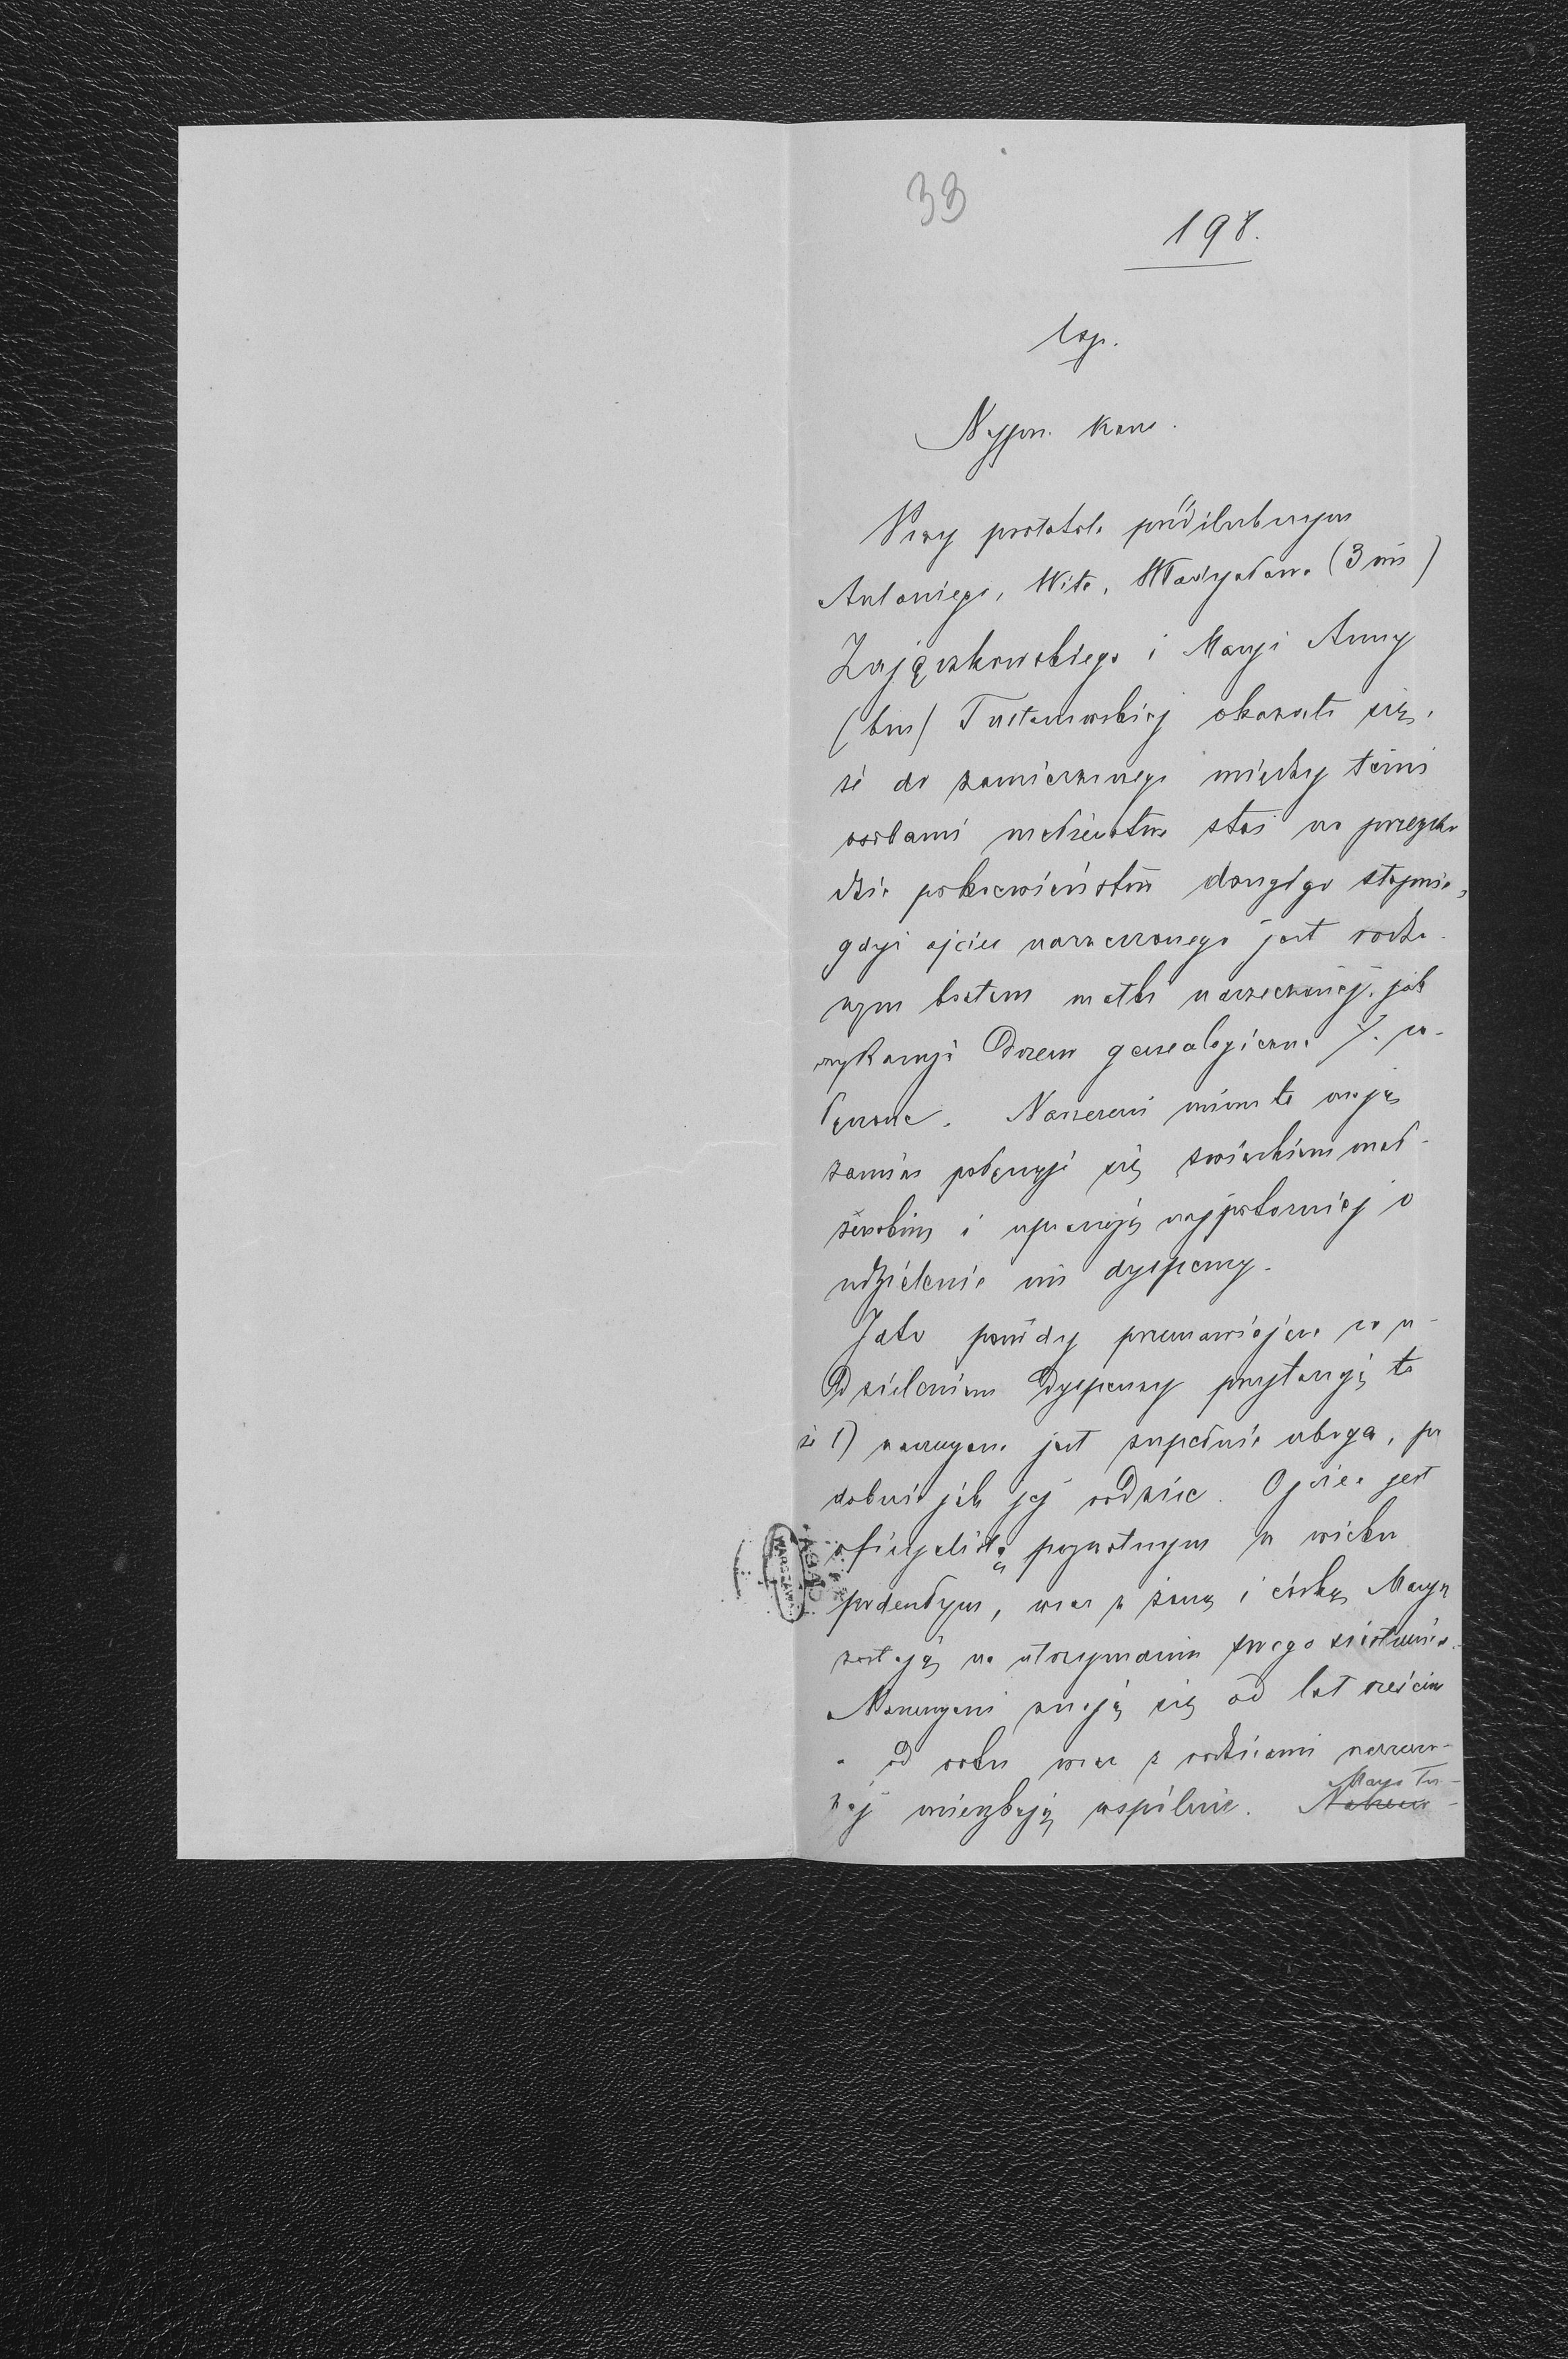 33
198.
Esp.
Najprz. Kons.
Przy protokole przedślubnym
Antoniego, Wita, Władysława (3 im)
Zajączkowskiego i Maryi Anny
(2im) Tustanowskiej okazało się,
że do zamierzonego między temi
osobami małżeństwa stoi na przeszko
dzie pokrewieństwo drugiego stopnia,
gdyż ojciec narzeczonego jest rodzo-
nym bratem matki narzeczonej, jak
wykazuje drzewo genealogiczne ./. za-
łączone. Narzeczeni mimo to mają
zamiar połączyć się związkiem mał-
żeńskim i upraszają najpokorniej o
udzielenie im dyspensy.
Jako powody przemawiające za u-
dzieleniem dyspensy przytaczają to
że 1) narzeczona jest zupełnie uboga, po
dobnie jak jej rodzice. Ojciec jest
oficyalistą prywatnym w wieku
podeszłym, wraz z żoną i córką Maryą
zostają na utrzymaniu swego siostrzeńca.
Narzeczeni znają się od lat sześciu
a od roku wraz z rodzicami narzeczo-
nej mieszkają wspólnie. Marya Tu-
AGAD
WARSZAWA